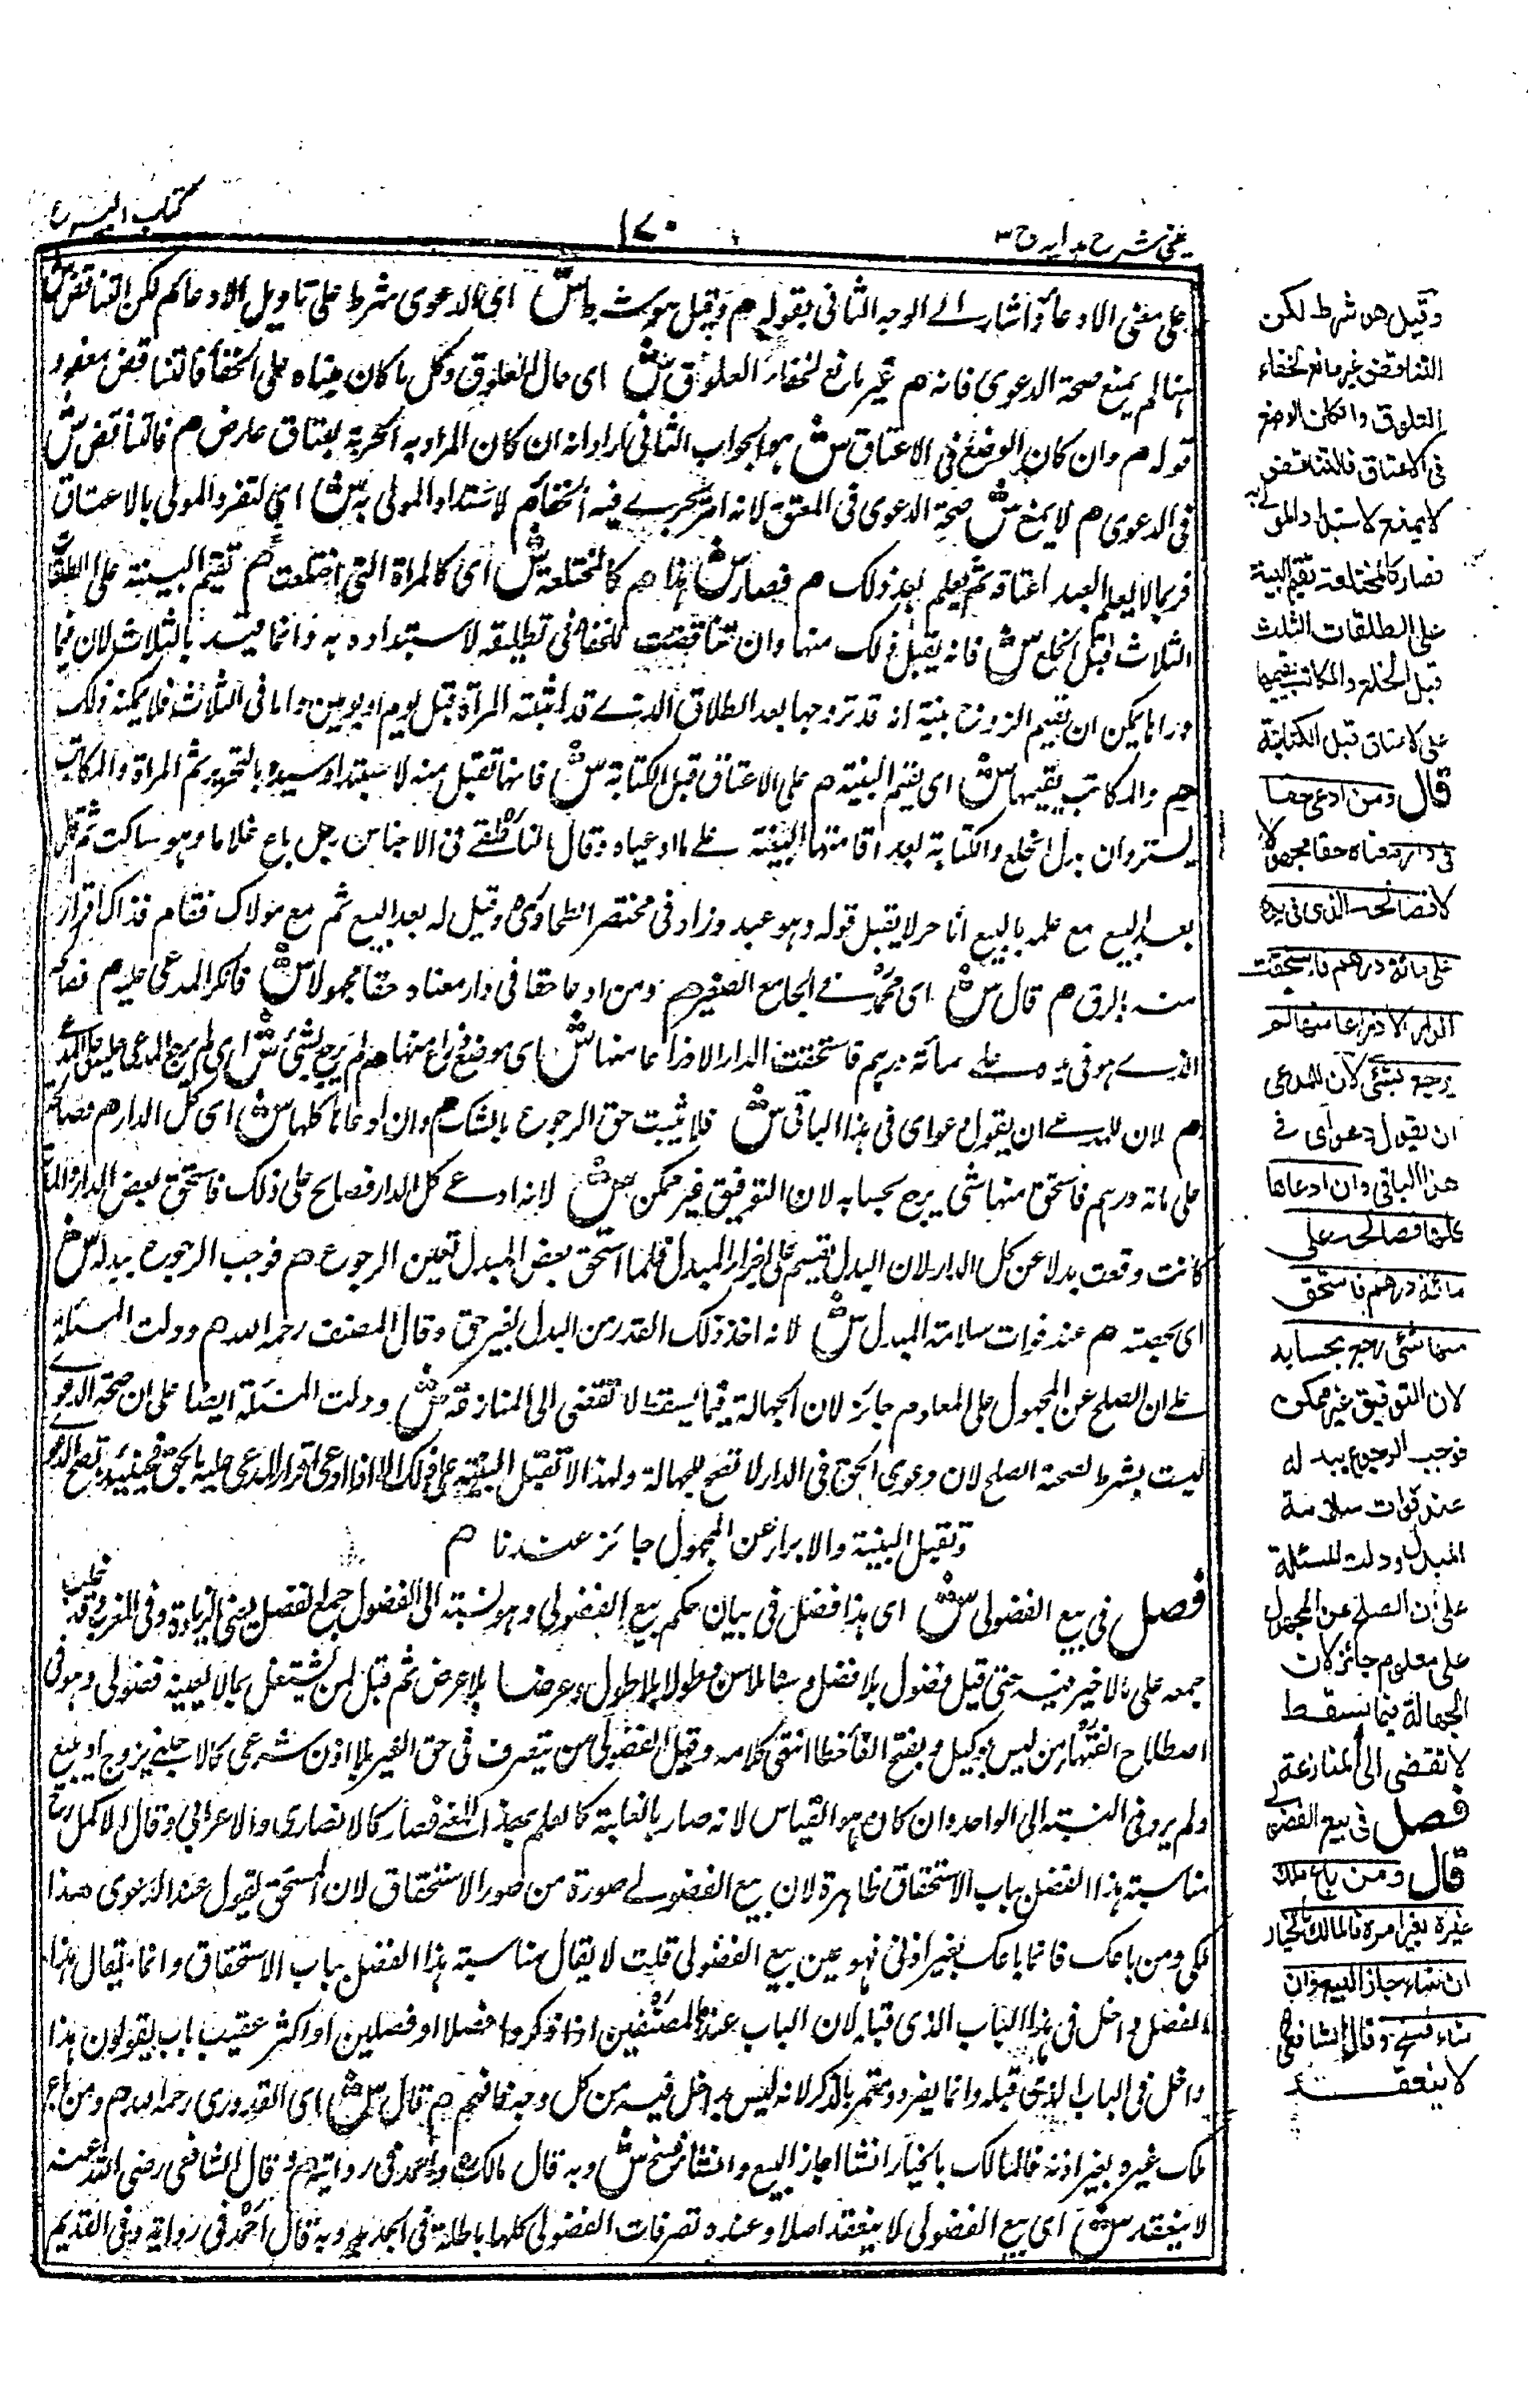 عینی شرح ہدایہ ج ۳
۱۷۰
کتاب البیوع
علی معنی الادعاء واشار الے الوجه الثانی بقوله م وقیل هو شرط ش ای الدعوی شرط علی تاویل الادعاء م لکن التناقض ش
هنا لم یمنع صحة الدعوی فانه م غیر مانع لخفاء العلوق ش ای حال العلوق وکل ما کان مبناه علی الخفاء فالتناقض معفو
قوله م وان کان الوضع فی الاعتاق ش هو الجواب الثانی اراد انه ان کان المراد به الحریة بعتاق عارض م فالتناقض ش
فی الدعوی م لا یمنع ش صحة الدعوی فی المعتق لانه امر یجرے فیه الخفاء م لاستبداد المولی به ش ای لتفرد المولی بالاعتاق
فربما لا یعلم العبد اعتاقه ثم یعلم بعد ذلک م فصار ش هذا م کالمختلعة ش ای کالمراة التی اختلعت م تقیم البینة علی الطلقات
الثلاث قبل الخلع ش فانه یقبل ذلک منها وان تناقضت للخفاء فی تطلیقه لاستبداده به وانما قید بالثلاث لان فیما
وراءها یمکن ان یقیم الزوج بینة انه قد تزوجها بعد الطلاق الذے قد اثبتته المراة قبل یوم او یومین واما فی الثلاث فلا یمکنه ذلک
م والمکاتب یقیمها ش ای یقیم البینة م علی الاعتاق قبل الکتابة ش فانها تقبل منه لاستبداد سیده بالتحریر ثم المراة والمکاتب
یستردان بدل الخلع والکتابة بعد اقامتهما البینة علے ما ادعیاه وقال الناطفے فی الاجناس رجل باع غلاما وهو ساکت ثم قال
بعد البیع مع علمه بالبیع انا حر لا یقبل قوله وهو عبد وزاد فی مختصر الطحاوی وقیل له بعد البیع قم مع مولاک فقام فذاک اقرار
منه بالرق م قال ش ای محمد فے الجامع الصغیر م ومن ادعا حقا فی دار معناه حقا مجهولا ش فانکر المدعی علیه م فصالحه
الذے هو فی یده علے مائة درهم فاستحقت الدار الا ذراعا منها ش ای موضع ذراع منها م لم یرجع بشیء ش ای لم یرجع المدعی علیه علی المدعے
م لان للمدعے ان یقول دعوای فی هذا الباقی ش فلا یثبت حق الرجوع بالشک م وان ادعاها کلها ش ای کل الدار م فصالحه
علی مائة درهم فاستحق منها شیء یرجع بحسابه لان التوفیق غیر ممکن ش لانه ادعے کل الدار فصالح علی ذلک فاستحق بعض الدار والمائة
کانت وقعت بدلا عن کل الدار لان البدل یقسم علی اجزاء المبدل فلما استحق بعض المبدل تعین الرجوع م فوجب الرجوع ببدله ش
ای بحصته م عند فوات سلامة المبدل ش لانه اخذ ذلک القدر من البدل بغیر حق وقال المصنف رحمه الله م ودلت المسئلة
علے ان الصلح عن المجهول علی المعلوم جائز لان الجهالة فیما یسقط لا تفضی الی المنازعة ش ودلت المسئلة ایضا علی ان صحة الدعوے
لیست بشرط لصحة الصلح لان دعوی الحق فی الدار لا تصح للجهالة ولهذا لا تقبل البینة علی ذلک الا اذا ادعی اقرار المدعی علیه بالحق فحینئذ تصح الدعوے
وتقبل البینة والابراء عن المجهول جائز عندنا م
فصل فی بیع الفضولی ش ای هذا فصل فی بیان حکم بیع الفضولی وهو نسبة الی الفضول جمع الفضل بمعنی الزیادة وفی المغرب وقد غلب
جمعه علی ما لا خیر فیه حتی قیل فضول بلا فضل وسنا بلا سن وطولا بلا طول وعرضا بلا عرض ثم قیل لمن یشتغل بما لا یعنیه فضولی وهو فی
اصطلاح الفقهاء من لیس بوکیل وبفتح الفاء خطا انتهی کلامه وقیل الفضولی من یتصرف فی حق الغیر بلا اذن شرعی کالاجنبے یزوج او یبیع
ولم یرد فی النسبة الی الواحد وان کان هو القیاس لانه صار بالغلبة کالعلم لهذا المعنے فصار کالانصاری والاعرابی وقال الاکمل رح
مناسبة هذا الفصل بباب الاستحقاق ظاهرة لان بیع الفضولے صورة من صور الاستحقاق لان المستحق یقول عند الدعوی هذا
ملکی ومن باعک فانما باعک بغیر اذنی فهو عین بیع الفضولی قلت لا یقال مناسبة هذا الفصل بباب الاستحقاق وانما یقال هذا
الفصل داخل فی هذا الباب الذی قبله لان الباب عند المصنفین اذا ذکروا فصلا او فصلین او اکثر عقیب باب یقولون هذا
داخل فی الباب الذی قبله وانما یفرد بالذکر لانه لیس بداخل فیه من کل وجه فافهم م قال ش ای القدوری رحمه الله م ومن باع
ملک غیره بغیر اذنه فالمالک بالخیار ان شاء اجاز البیع وان شاء فسخ ش وبه قال مالک واحمد فی روایة م وقال الشافعی رضی الله عنه
لا ینعقد ش ای بیع الفضولی لا ینعقد اصلا وعنده تصرفات الفضولی کلها باطلة فی الجدید وبه قال احمد فی روایة وفی القدیم
وقیل هو شرط لکن
التناقض غیر مانع لخفاء
العلوق وان کان الوضع
فی الاعتاق فالتناقض
لا یمنع لاستبداد المولی به
فصار کالمختلعة تقیم البینة
علی الطلقات الثلث
قبل الخلع والمکاتب یقیمها
علی الاعتاق قبل الکتابة
قال ومن ادعی حقا
فی دار معناه حقا مجهولا
فصالحه الذی فی یده
علی مائة درهم فاستحقت
الدار الا ذراعا منها لم
یرجع بشئ لان للمدعی
ان یقول دعوای فی
هذا الباقی وان ادعاها
کلها فصالحه علی
مائة درهم فاستحق
منها شئ رجع بحسابه
لان التوفیق غیر ممکن
فوجب الرجوع ببدله
عند فوات سلامة
المبدل ودلت المسئلة
علی ان الصلح عن المجهول
علی معلوم جائز لان
الجهالة فیما یسقط
لا تفضی الی المنازعة
فصل فی بیع الفضولی
قال ومن باع ملک
غیره بغیر امره فالمالک بالخیار
ان شاء اجاز البیع وان
شاء فسخ وقال الشافعی
لا ینعقد